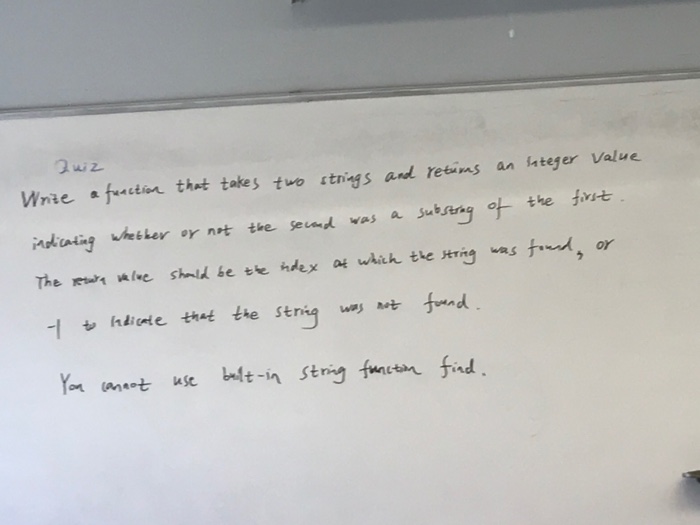 Quiz
Write a function that takes two strings and returns an integer value
indicating whether or not the second was a substring of the first.
The return value should be the index at which the string was found, or
-1 to indicate that the string was not found.
You cannot use built-in string function find.